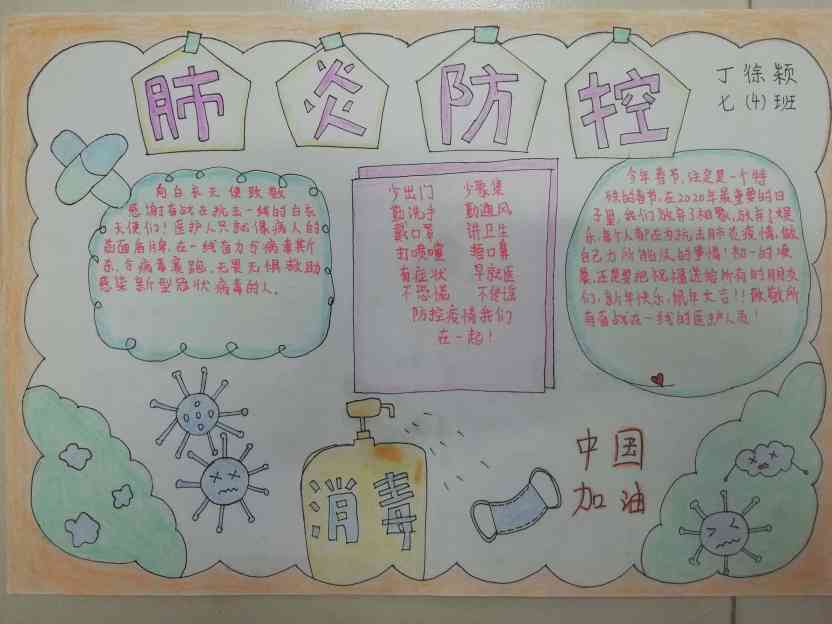 肺炎防控
丁徐颖
七(4)班
向白衣天使致敬
感谢奋战在抗击一线的白衣
天使们!医护人员就像病人的
在一线奋力与病毒
与病毒赛跑,无畏无惧救助
感染新型冠状病毒的人。
少出门 少聚集
勤洗手 勤通风
戴口罩 讲卫生
打喷嚏 捂口鼻
有症状 早就医
不恐慌 不传谣
防控疫情我们
在一起!
今年春节,注定是一个特
殊的春节,在2020年最重要的日
子里,我们放弃了相聚,放弃了娱
乐,每个人都在为抗击肺炎疫情,做
自己力所能及的事情!初一的
还是要把祝福送给所有的朋友
们,新年快乐,鼠年大吉!!致敬所
有奋战在一线的医护人员!
消毒
中国
加油